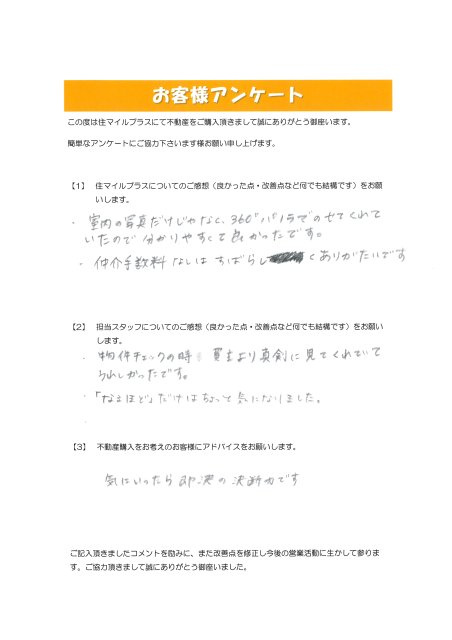 お客様アンケート
この度は住マイルプラスにて不動産をご購入頂きまして誠にありがとう御座います。
簡単なアンケートにご協力下さいます様お願い申し上げます。
【1】 住マイルプラスについてのご感想（良かった点・改善点など何でも結構です）をお願
いします。
・室内の写真だけじゃなく、360°パノラマでのせてくれて
いたので分かりやすくて良かったです。
・仲介手数料なしは すばらしくありがたいです
【2】 担当スタッフについてのご感想（良かった点・改善点など何でも結構です）をお願い
します。
・物件チェックの時、買主より真剣に見てくれていて
うれしかったです。
・「なるほど」だけはちょっと気になりました。
【3】 不動産購入をお考えのお客様にアドバイスをお願いします。
気にいったら即決の決断力です
ご記入頂きましたコメントを励みに、また改善点を修正し今後の営業活動に生かして参りま
す。ご協力頂きまして誠にありがとう御座いました。